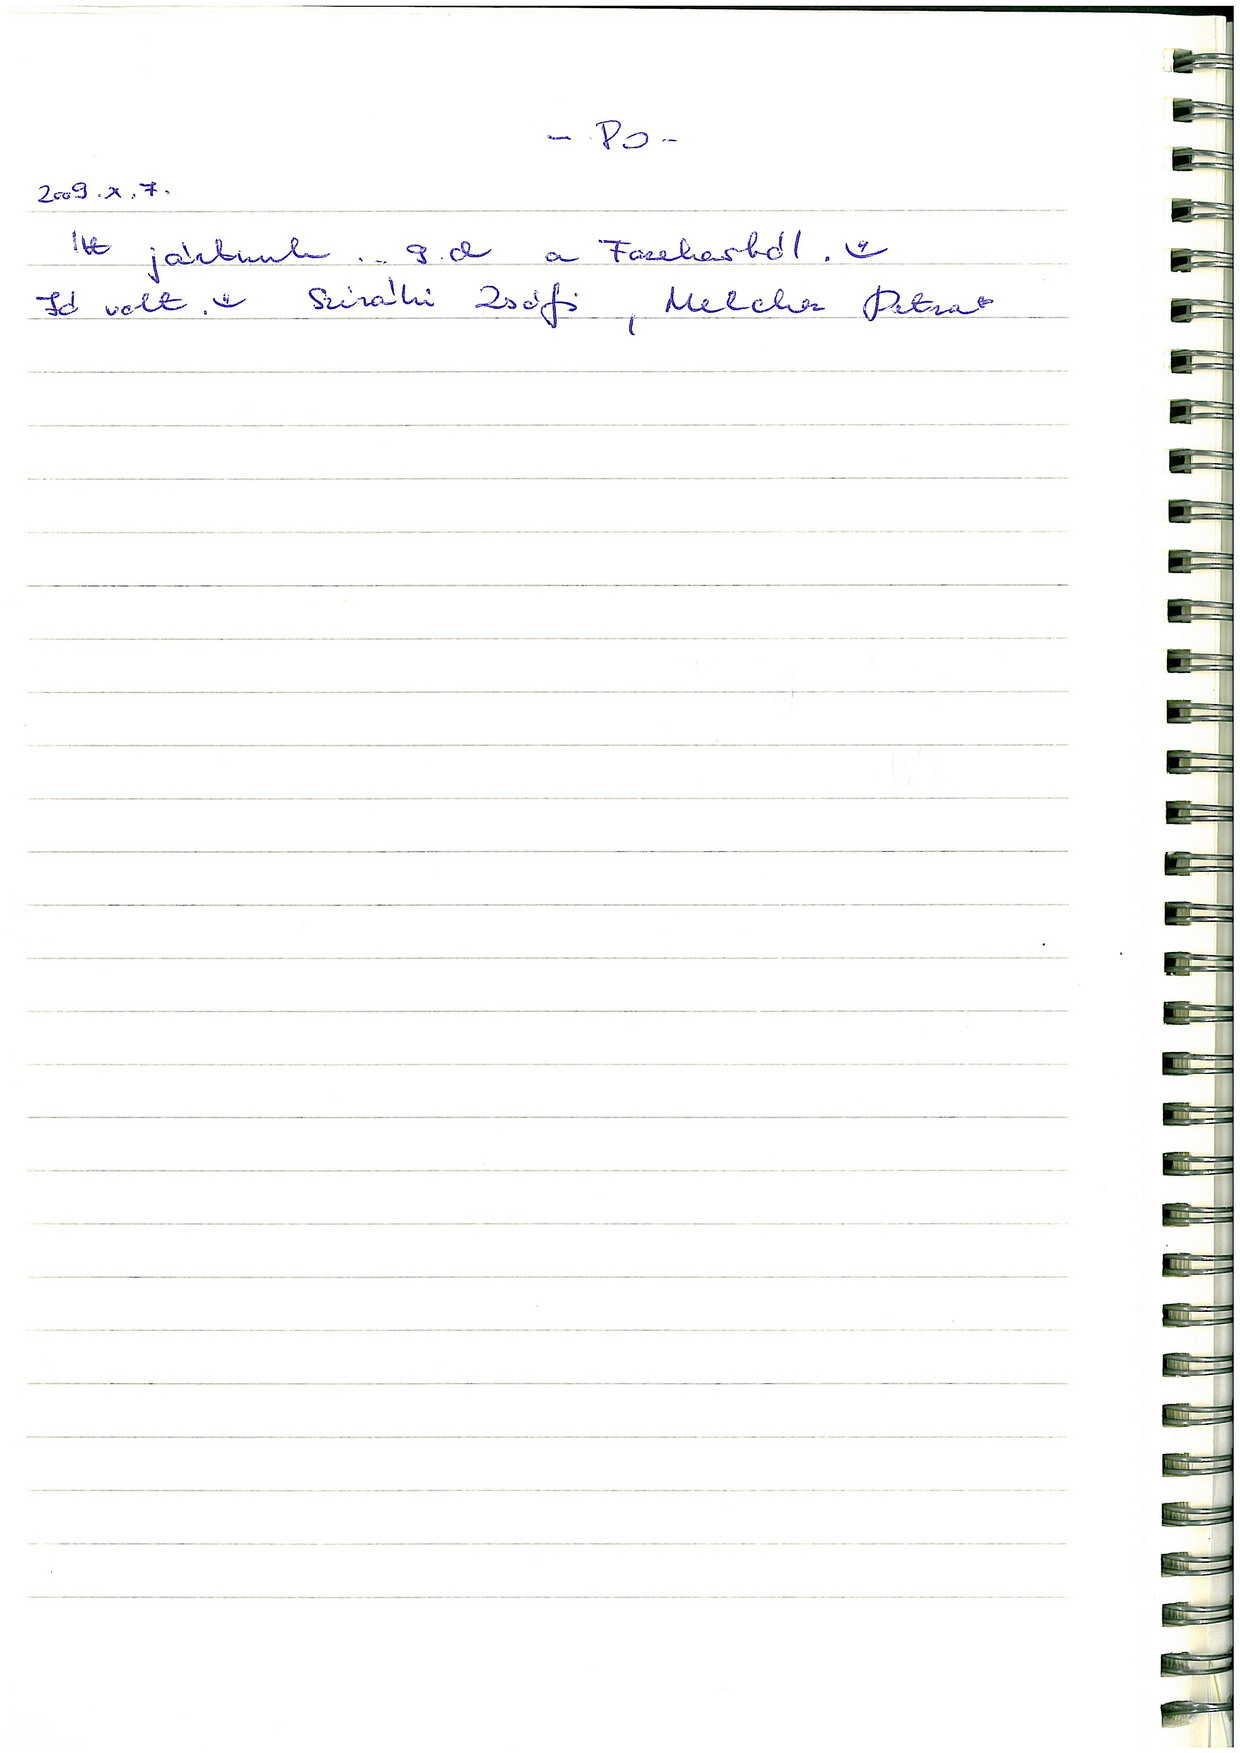 2009.X.7.
Itt jártunk .. 9.d a Fazekasból.
Jó volt. Sziráki Zsófi, Melcher Petra